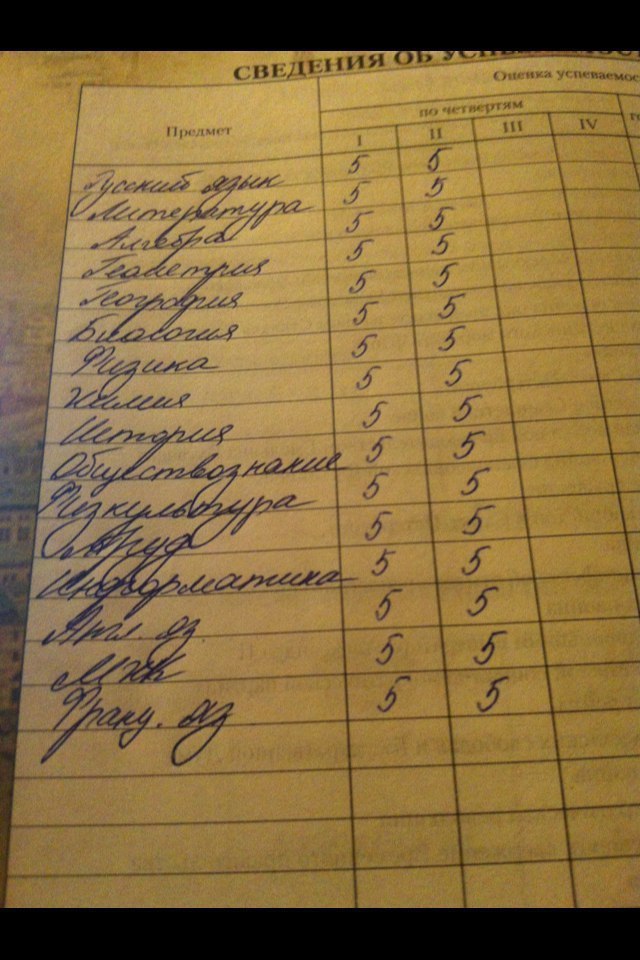 СВЕДЕНИЯ ОБ УСПЕВАЕМОС
Предмет
Оценка успеваемос
по четвертям
I II III IV
Русский язык 5 5
Литература 5 5
Алгебра 5 5
Геометрия 5 5
География 5 5
Биология 5 5
Физика 5 5
Химия 5 5
История 5 5
Обществознание 5 5
Физкультура 5 5
Труд 5 5
Информатика 5 5
Англ. яз. 5 5
МХК 5 5
Франц. яз 5 5